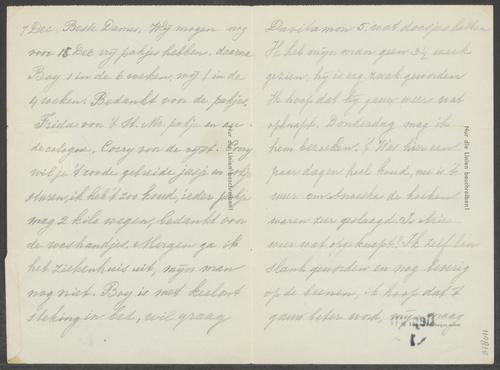 7 Dec. Beste Dames, Wij mogen nog
voor 18 Dec vrij pakjes hebben, daarna
Boy 1 in de 6 weken, wij 1 in de
4 weken. Bedankt voor de pakjes,
Frida voor 't St. Nic. pakje en eau
de cologne, Corry voor de
wil je 't roode gebreide jasje
sturen, ik heb 't zoo koud, ieder pakje
mag 2 kilo wegen, bedankt voor
de washandjes. Morgen ga ik
het ziekenhuis uit, mijn man
nog niet. Boy is met
in bed, wil graag
Nur die Linien beschreiben!
Davitamon 5, wat doosjes hebben
Ik heb mijn man geen 3½ week
gezien, hij is erg zwak geworden
Ik hoop dat hij gauw weer wat
opknapt. Donderdag mag ik
hem bezoeken. 't Was hier een
paar dagen heel koud, nu is 't
weer om de koeken
waren zeer geslaagd. Is Mies
weer wat opgeknapt? Ik zelf ben
slank geworden en nog beverig
op de beenen, ik hoop dat 't
gauw beter word, mijn
Nur die Linien beschreiben!